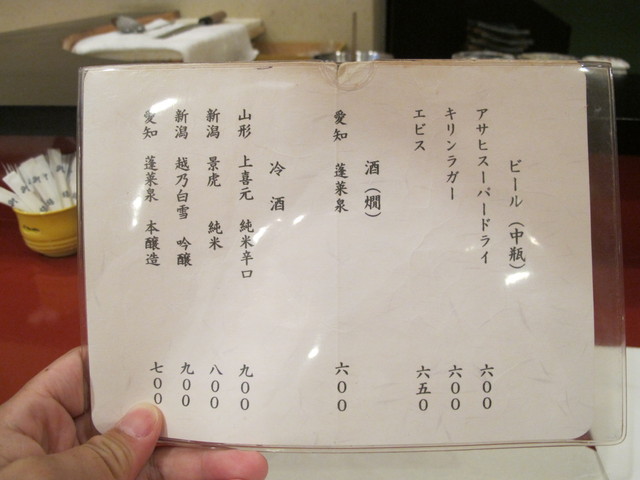 ビール（中瓶）
アサヒスーパードライ 六００
キリンラガー 六００
エビス 六五０
酒（燗）
愛知 蓬莱泉 六００
冷酒
山形 上喜元 純米辛口 九００
新潟 景虎 純米 八００
新潟 越乃白雪 吟醸 九００
愛知 蓬莱泉 本醸造 七００